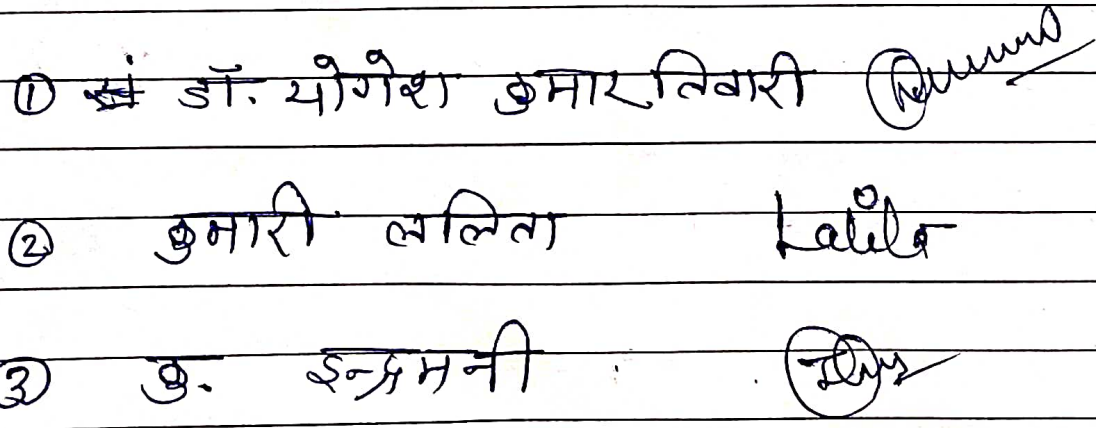 ① डॉ. योगेश कुमार तिवारी
② कुमारी ललिता Lalita
③ कु. इन्द्रमनी